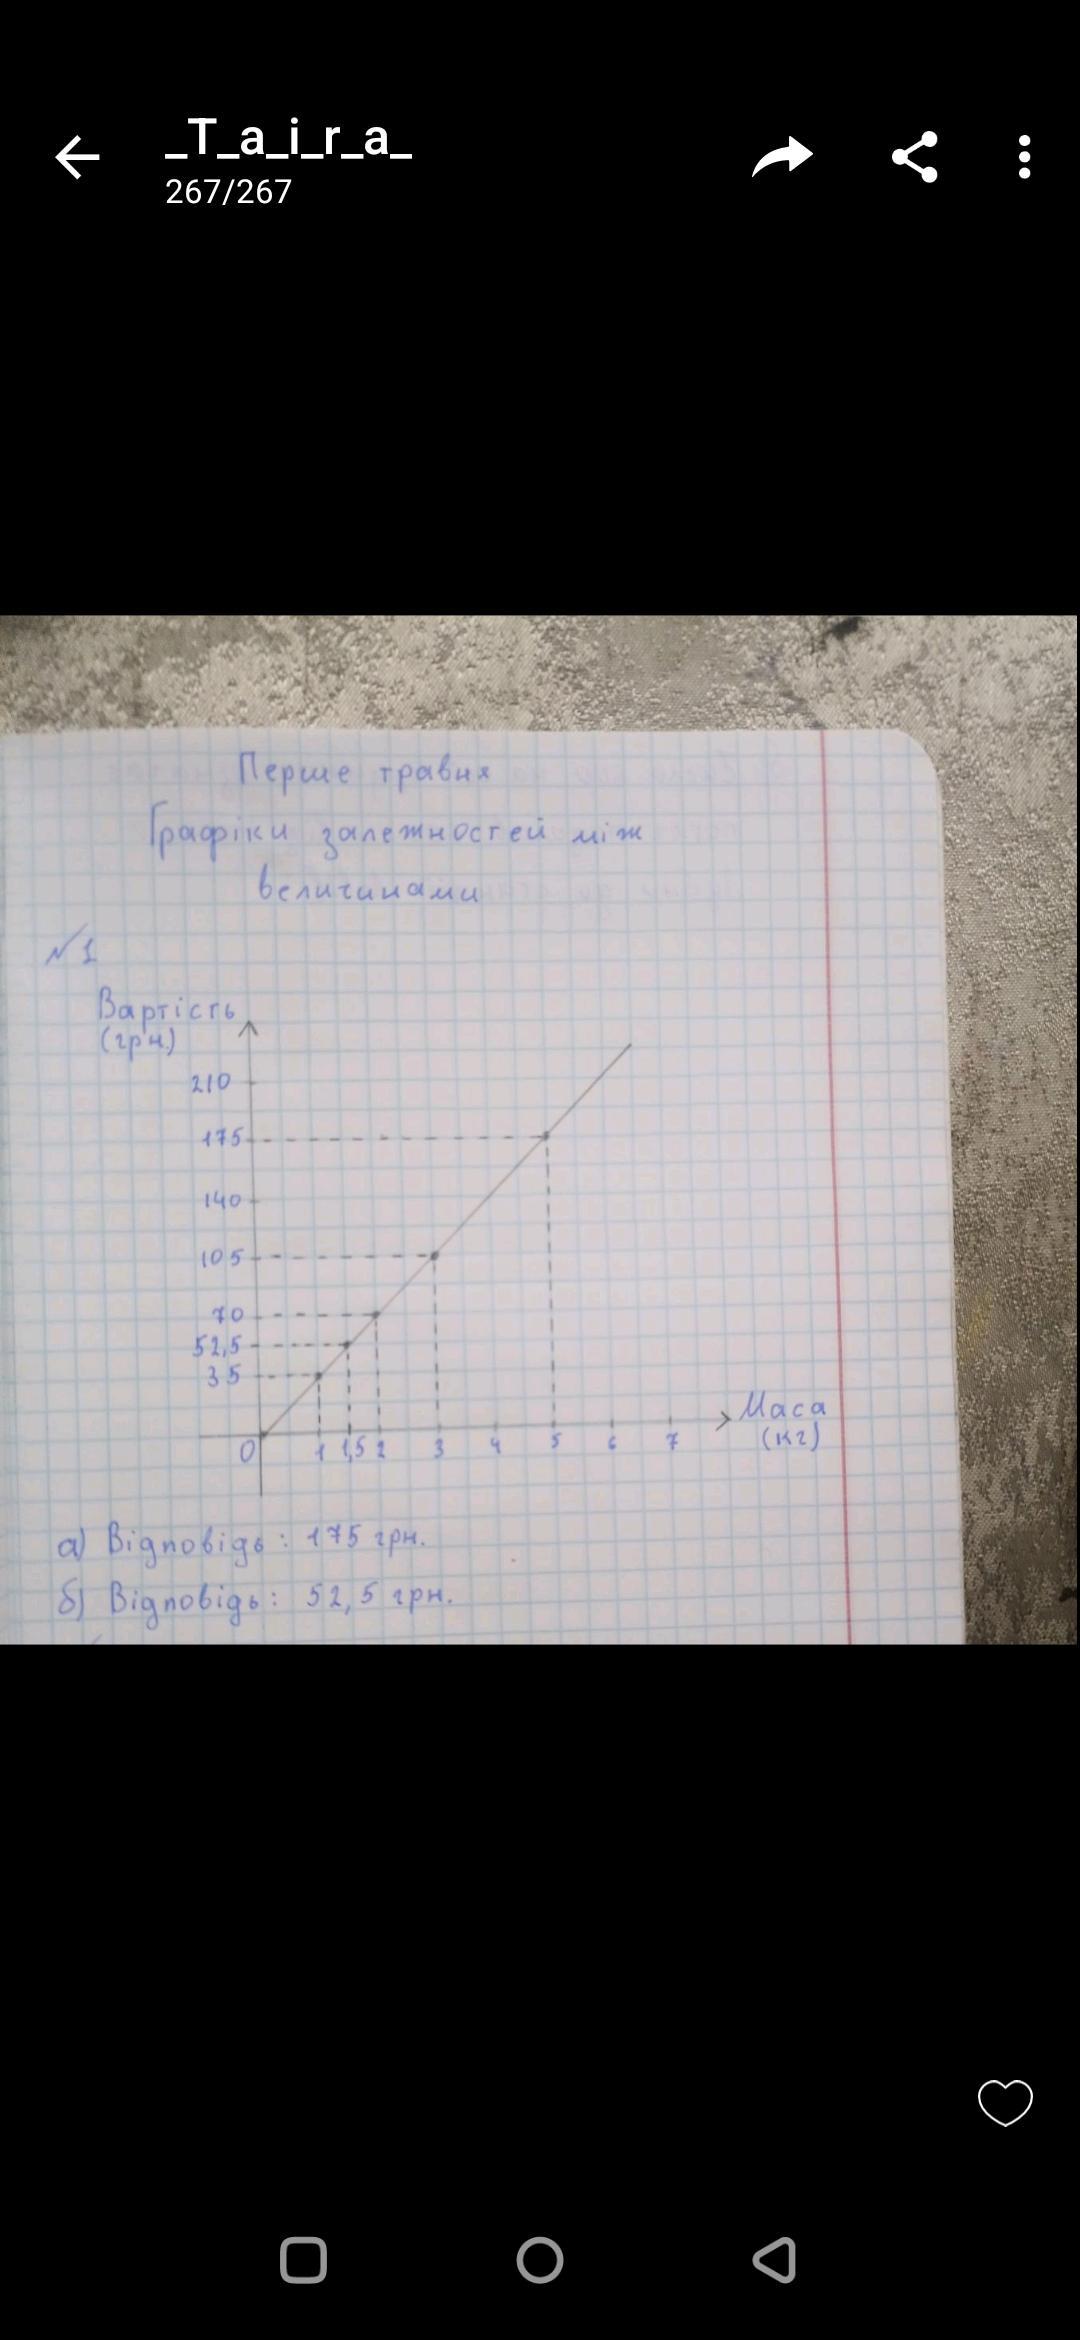 _T_a_i_r_a_
267/267
Перше травня
Графіки залежностей між
величинами
№1
Вартість
(грн.)
210
175
140
105
70
52,5
35
0 1 1,5 2 3 4 5 6 7
Маса
(кг)
а) Відповідь: 175 грн.
б) Відповідь: 52,5 грн.